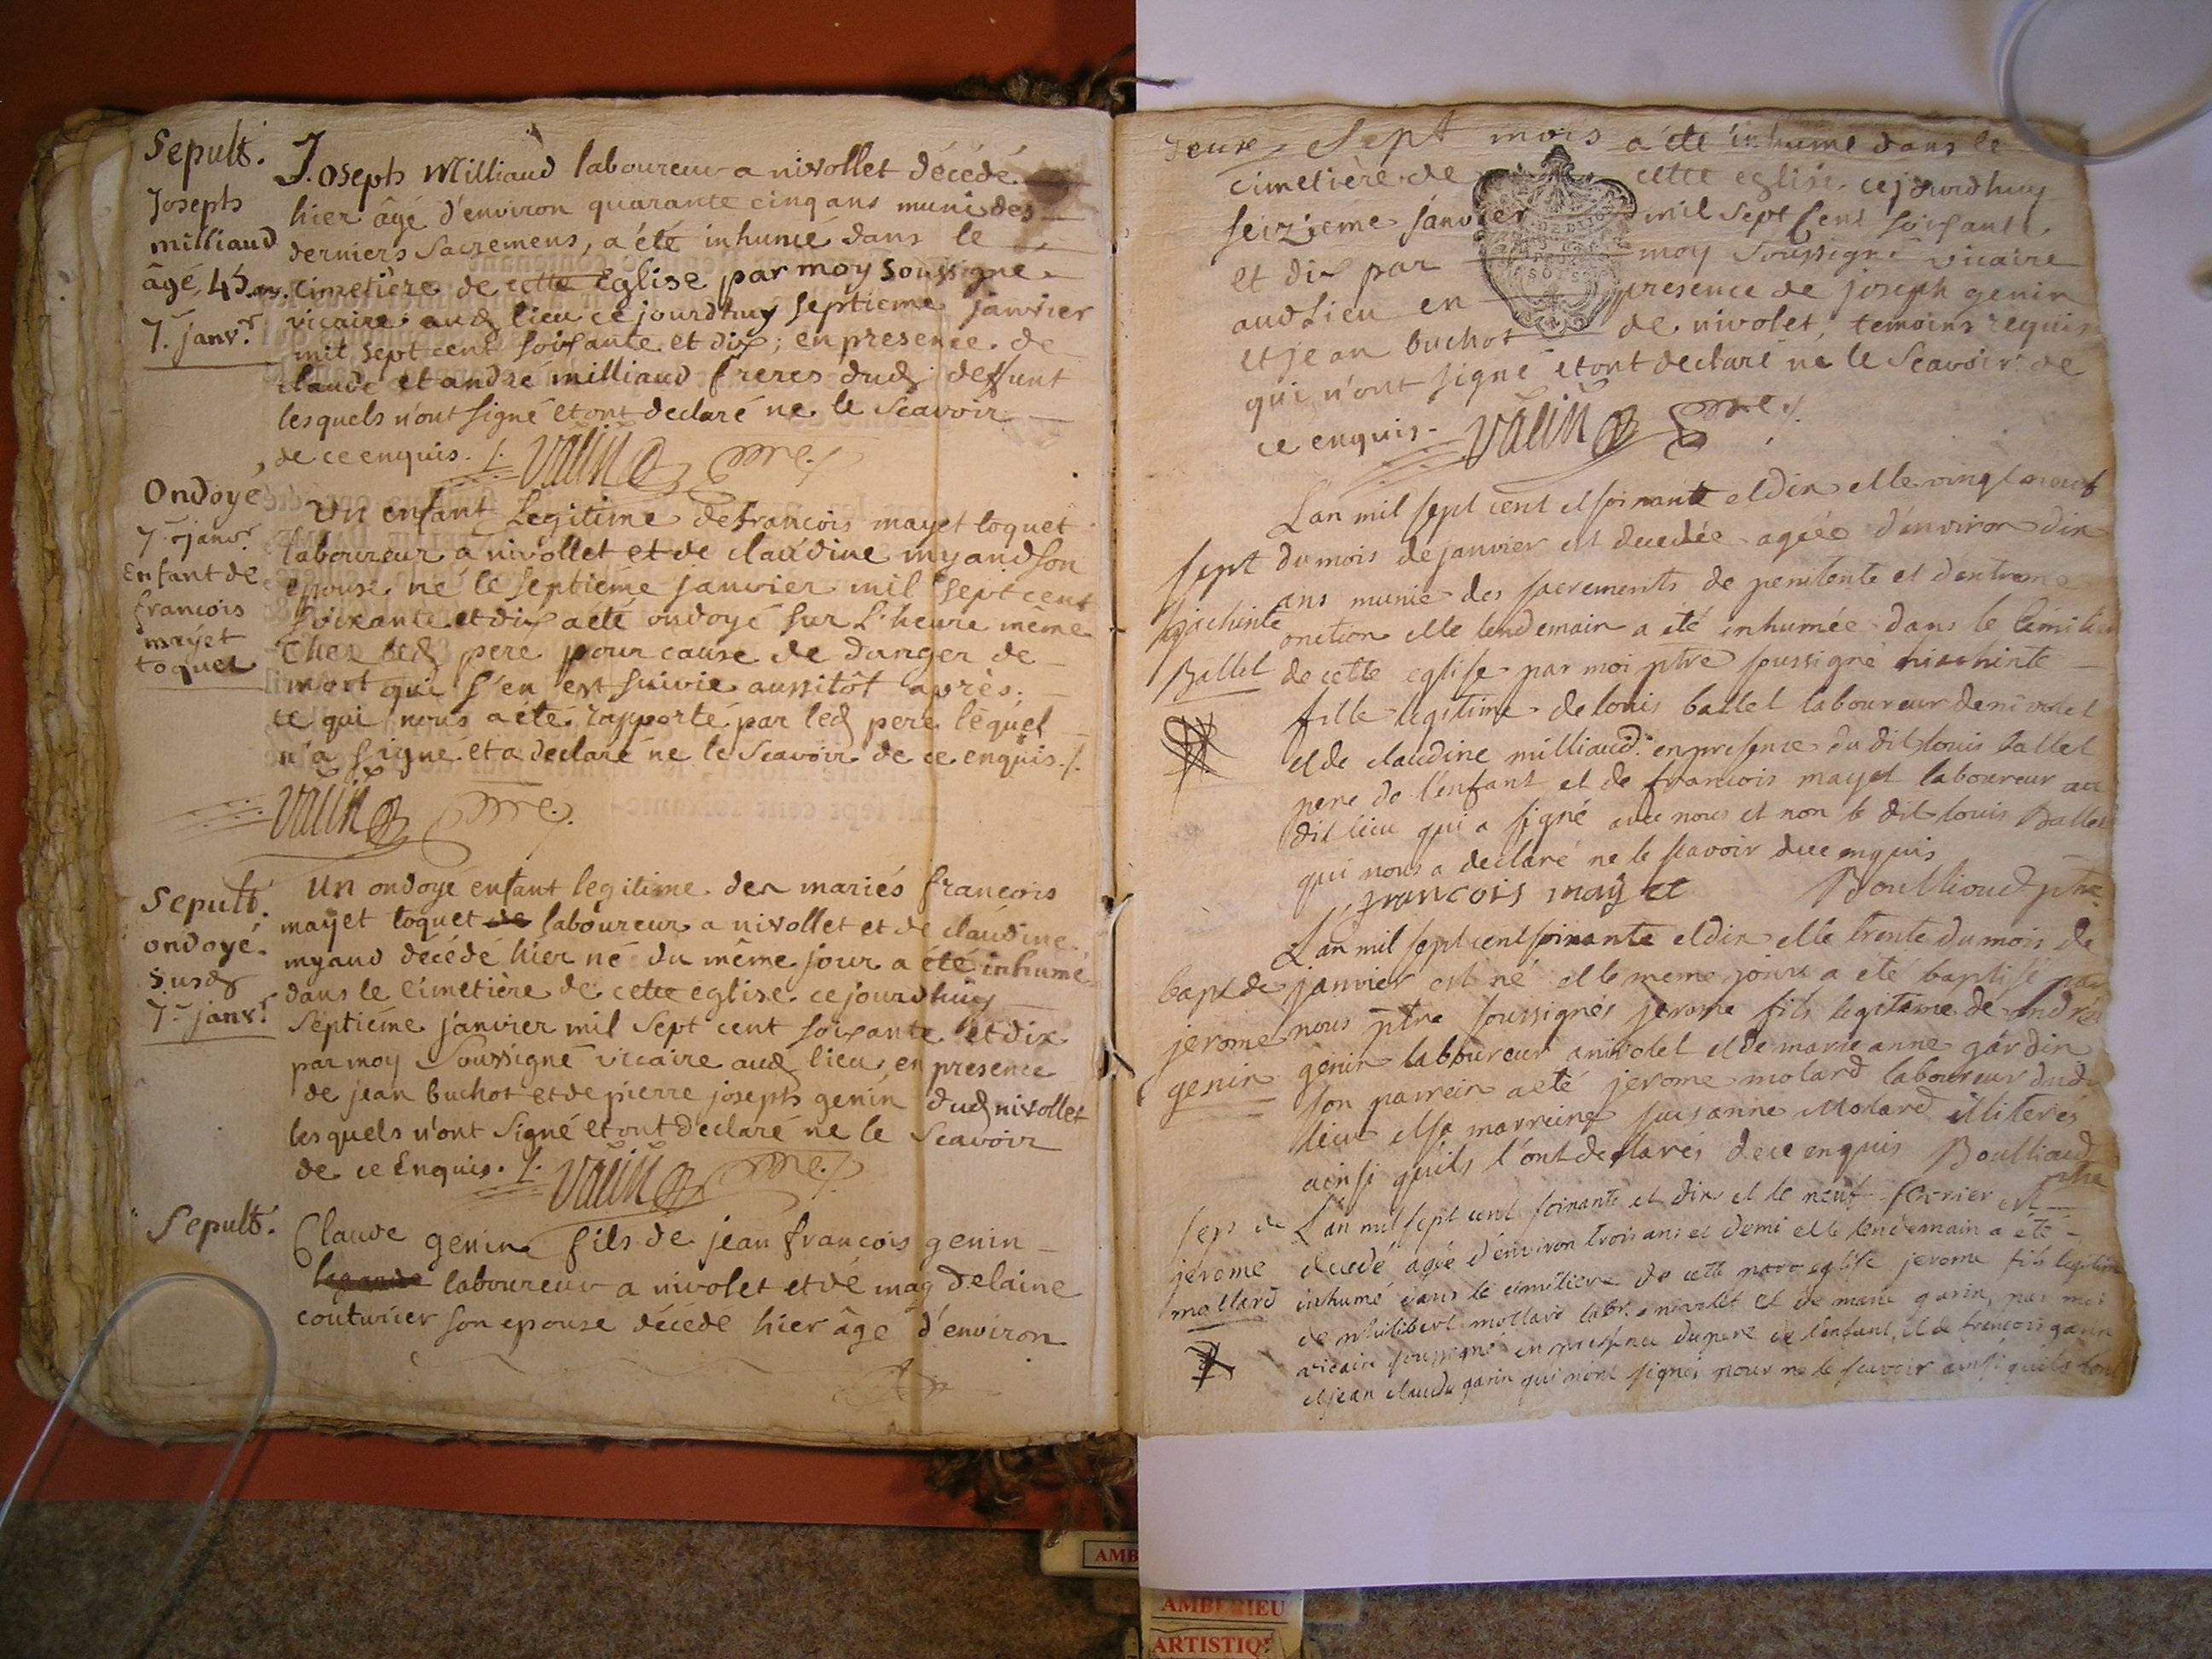 Sepult.
Joseph
milliaud
âgé 45 ans.
7.e janv.r
Joseph Milliaud laboureur a nivollet décédé
hier âgé d'environ quarante cinq ans muni des
derniers Sacremens, a été inhumé dans le
cimetière de cette Eglise par moy soussigné
vicaire aud lieu ce jourdhuy septieme janvier
mil sept cent soixante et dix; en presence de
claude et andré milliaud freres dud deffunt
lesquels n'ont signé et ont declaré ne le Scavoir
de ce enquis. /. Valin vre./.
Ondoyé
7.e janv.r
Enfant de
francois
mayet
toquet
Un enfant Legitime de francois mayet toquet
laboureur a nivollet et de claudine myand son
epouse né le septiéme janvier mil sept cent
soixante et dix a été ondoyé sur l'heure même
Chez led pere pour cause de danger de
mort qui s'en est suivie aussitôt après.
ce qui nous a été rapporté par led pere lequel
n'a signé et a declaré ne le Scavoir de ce enquis./.
Valin vre./.
Sepult.
ondoyé
susd
7.e janv.r
Un ondoyé enfant legitime des mariés francois
mayet toquet de laboureur a nivollet et de claudine
myaud décédé hier né du même jour a été inhumé
dans le cimetière de cette eglise ce jourdhuy
septiéme janvier mil sept cent soixante et dix
par moy Soussigné vicaire aud lieu, en presence
de jean buchot et de pierre joseph genin dud nivollet
lesquels n'ont signé et ont declaré ne le Scavoir
de ce Enquis. /. Valin vre./.
Sepult.
Claude genin fils de jean francois genin
laboureur a nivolet et de magdelaine
couturier son epouse décédé hier âgé d'environ
deux, sept mois a été inhumé dans le
cimetière de cette eglise. cejourdhuy
seizieme janvier mil sept cent soixante
et dix par moy soussigné vicaire
aud Lieu en presence de joseph genin
et jean buchot de nivolet, temoins requis
qui n'ont signé et ont declaré ne le Scavoir de
ce enquis. Valin vre./.
L'an mil sept cent et soixante et dix et le vingt neuf
sept du mois de janvier est decedée agée d'environ dix
ans munie des sacrements de penitente et d'extreme
hiachinte onction et le lendemain a été inhumée dans le cimitiere
Ballet de cette eglise par moi ptre soussigné hiachinte
fille legitime de louis ballet laboureur de nivolet
et de claudine milliaud. en presence du dit louis ballet
pere de l'enfant et de francois mayet laboureur au
dit lieu qui a signé avec nous et non le dit louis Ballet
qui nous a declaré ne le scavoir de ce enquis
francois mayet Boullioud ptre
L'an mil sept cent soixante et dix et le trente du mois de
bapt de janvier est né et le meme jour a été baptisé par
jerome nous ptre soussignés jerome fils legitime de andré
genin genin laboureur a nivolet et de marie anne gardin
son parrein a eté jerome molard laboureur dud
lieu et sa marreine susanne Molard illiterés
ainsi quils l'ont declarés de ce enquis Boulliaud
ptre
sep de L'an mil sept cent soixante et dix et le neuf fevrier est
jerome decedé agée d'environ trois ans et demi et le lendemain a été
mollard inhumé dans le cimetiere de cette eglise jerome fils legitime
de philibert mollard labr. a nivolet et de marie garin, par moi
vicaire soussigné en presence du pere de l'enfant, et de francois garin
et jean claude garin qui n'ont signés pour ne le scavoir ainsi quils l'ont
AMB
AMBERIEU
ARTISTIQ